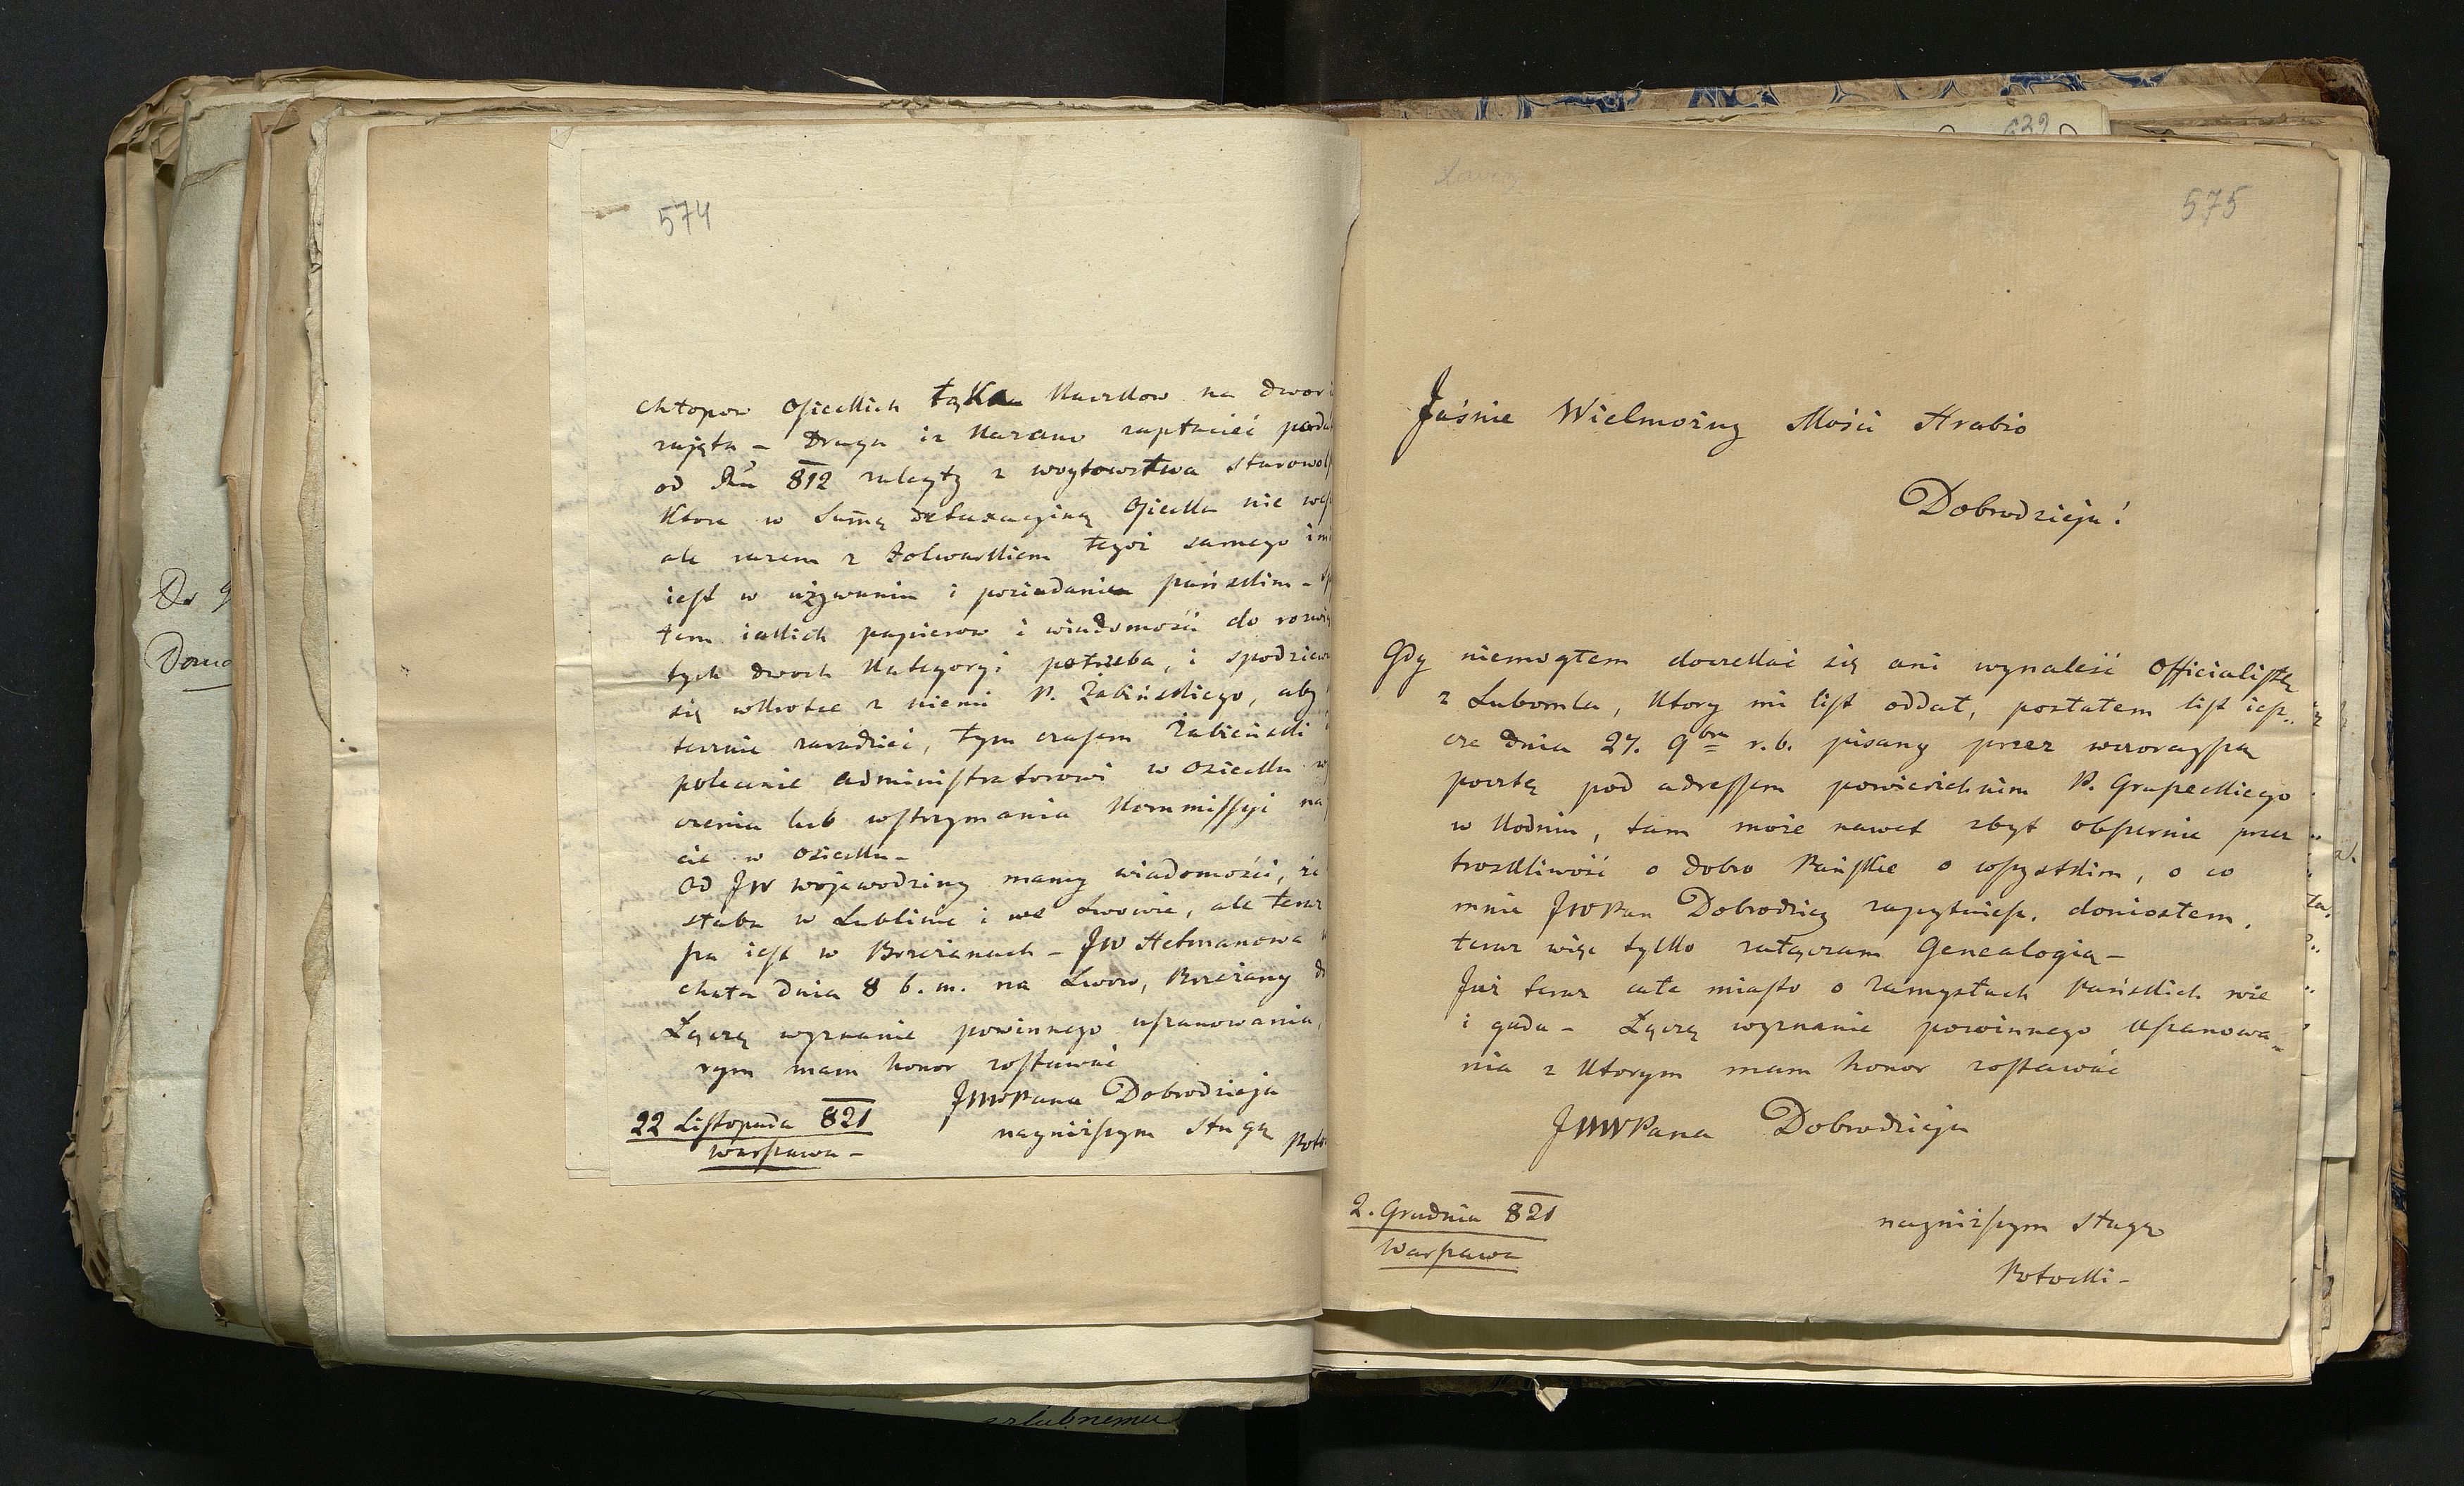 574
chłopow Osieckich łąka Kaczkow na dwor
zajęta – Druga iż kazano zapłacić poda
od Rū 812 należytz z woytowstwa starowol
Ktore w Summę detaxacyiną Osiecka nie
ale razem z folwarkiem tegoż samego
iest w używaniu i posiadaniu pańskim –
tem iakich papierow i wiadomości do
tych dwoch kategoryi potrzeba, i
się wkrotce z niemi P. Żabińskiego, aby
zaradzić, tym czasem Żabiński
polecenie administratorowi w Osiecku
czenia lub wstrzymania Kommissyi na
cie w Osiecku –
Od JW Wojewodziny mamy wiadomości, że
słaba w Lublinie i we Lwowie, ale teraz
sza iest w Brzeżanach – JW Hetmanowa
chała dnia 8 b. m. na Lwow, Brzeżany
Łączę wyznanie powinnego uszanowania,
rym mam honor zostawać
JWWPana Dobrodzieja
nayniższym sługą
22 Listopada 821
Warszawa –
575
Jaśnie Wielmożny Mości Hrabio
Dobrodzieju!
Gdy niemogłem doczekać się ani wynaleść Officialistę
z Lubomla, ktory mi list oddał, posłałem list iesz„
cze dnia 27. 9bra r. b. pisany przez wczorayszą
pocztę pod adressem powierzchnim P. Grupeckiego
w Kodniu, tam może nawet zbyt obszernie przez
troskliwość o dobro Pańskie o wszystkim, o co
mnie JWPan Dobrodziey zapytuiesz. doniosłem.
teraz więc tylko załączam Genealogią –
Już teraz całe miasto o zamysłach Pańskich wie
i gada – Łączę wyznanie powinnego uszanowa„
nia z ktorym mam honor zostawać
JWWPana Dobrodzieja
2. Grudnia 821
Warszawa
nayniższym sługą
Potocki –